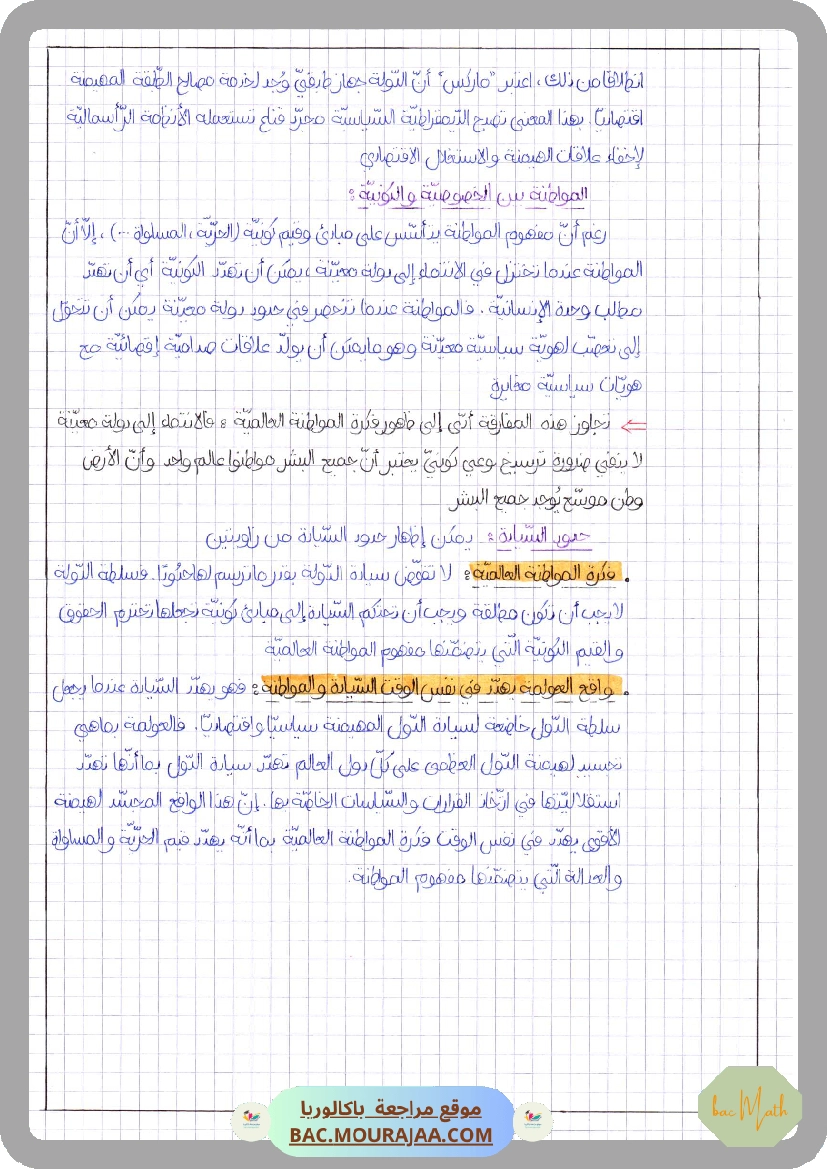 انطلاقا من ذلك، اعتبر "ماركس" أنّ الدّولة جهاز طبقيّ وُجد لخدمة مصالح الطّبقة المهيمنة
اقتصاديّا. بهذا المعنى تصبح الدّيمقراطيّة السّياسيّة مجرّد قناع تستعمله الأنظمة الرّأسماليّة
لإخفاء علاقات الهيمنة والاستغلال الاقتصادي
المواطنة بين الخصوصيّة والكونيّة:
رغم أنّ مفهوم المواطنة يتأسّس على مبادئ وقيم كونيّة (الحرّيّة، المساواة ...)، إلّا أنّ
المواطنة عندما تختزل في الانتماء إلى دولة معيّنة، يمكن أن تهدّد الكونيّة أي أن تهدّد
مطالب وحدة الإنسانيّة. فالمواطنة عندما تنحصر في حدود دولة معيّنة يمكن أن تتحوّل
إلى تعصّب لهويّة سياسيّة معيّنة وهو ما يمكن أن يولّد علاقات صداميّة إقصائيّة مع
هويّات سياسيّة مغايرة
⇐ تجاوز هذه المفارقة أدّى إلى ظهور فكرة المواطنة العالميّة: فالانتماء إلى دولة معيّنة
لا ينفي ضرورة ترسيخ وعي كونيّ يعتبر أنّ جميع البشر مواطنوا عالم واحد وأنّ الأرض
وطن موسّع يُوحد جميع البشر
حدود السّيادة: يمكن إظهار حدود السّيادة من زاويتين
. فكرة المواطنة العالميّة: لا تقوّض سيادة الدّولة بقدر ما ترسم لها حدُودًا. فسلطة الدّولة
لا يجب أن تكون مطلقة ويجب أن تحتكم السّيادة إلى مبادئ كونيّة تجعلها تحترم الحقوق
والقيم الكونيّة الّتي يتضمّنها مفهوم المواطنة العالميّة
. واقع العولمة يهدّد في نفس الوقت السّيادة والمواطنة: فهو يهدّد السّيادة عندما يجعل
سلطة الدّول خاضعة لسيادة الدّول المهيمنة سياسيّا واقتصاديّا. فالعولمة بماهي
تجسيد لهيمنة الدّول العظمى على كلّ دول العالم تهدّد سيادة الدّول بما أنّها تهدّد
استقلاليّتها في اتّخاذ القرارات والسّياسات الخاصّة بها. إنّ هذا الواقع المجسّد لهيمنة
الأقوى يهدّد في نفس الوقت فكرة المواطنة العالميّة بما أنّه يهدّد قيم الحرّيّة والمساواة
والعدالة الّتي يتضمّنها مفهوم المواطنة.
موقع مراجعة باكالوريا
BAC.MOURAJAA.COM
bac Math